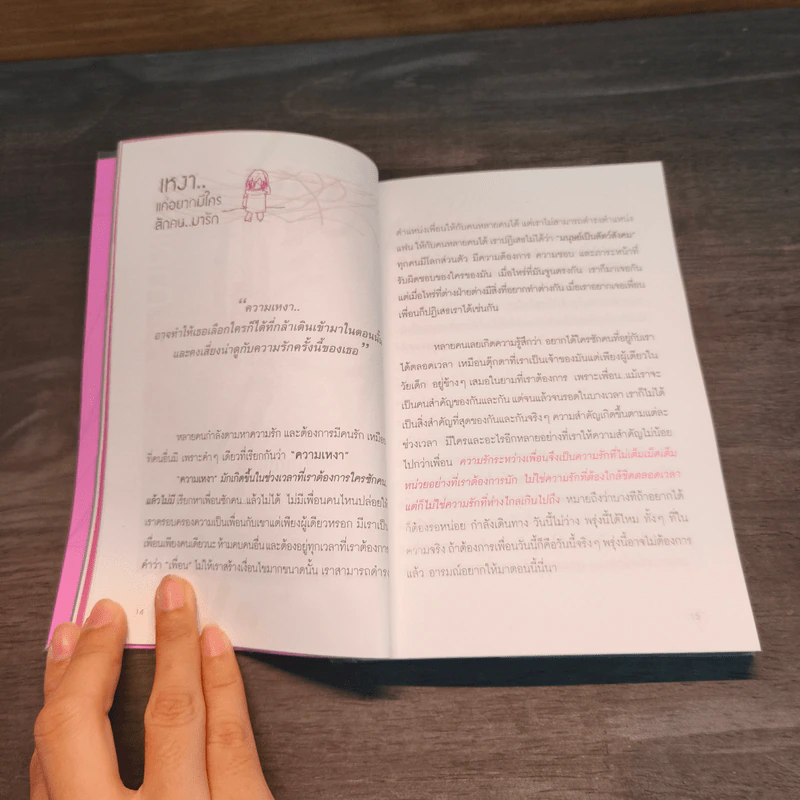 เหงา..
แค่อยากมีใคร
สักคน..มารัก
"ความเหงา..
อาจทำให้เธอเลือกใครก็ได้ที่กล้าเดินเข้ามาในตอนนั้น
และคงเสี่ยงน่าดูกับความรักครั้งนี้ของเธอ"
หลายคนกำลังตามหาความรัก และต้องการมีคนรัก เหมือน
ที่คนอื่นมี เพราะคำๆ เดียวที่เรียกกันว่า "ความเหงา"
"ความเหงา" มักเกิดขึ้นในช่วงเวลาที่เราต้องการใครซักคน
แล้วไม่มี เรียกหาเพื่อนซักคน..แล้วไม่ได้ ไม่มีเพื่อนคนไหนปล่อยให้
เราครอบครองความเป็นเพื่อนกับเขาแต่เพียงผู้เดียวหรอก มีเราเป็น
เพื่อนเพียงคนเดียวนะ ห้ามคบคนอื่น และต้องอยู่ทุกเวลาที่เราต้องการ
คำว่า "เพื่อน" ไม่ให้เราสร้างเงื่อนไขมากขนาดนั้น เราสามารถดำรง
14
ตำแหน่งเพื่อนให้กับคนหลายคนได้ แต่เราไม่สามารถดำรงตำแหน่ง
แฟน ให้กับคนหลายคนได้ เราปฏิเสธไม่ได้ว่า "มนุษย์เป็นสัตว์สังคม"
ทุกคนมีโลกส่วนตัว มีความต้องการ ความชอบ และภาระหน้าที่
รับผิดชอบของใครของมัน เมื่อไหร่ที่มันจูนตรงกัน เราก็มาเจอกัน
แต่เมื่อไหร่ที่ต่างฝ่ายต่างมีสิ่งที่อยากทำต่างกัน เมื่อเราอยากเจอเพื่อน
เพื่อนก็ปฏิเสธเราได้เช่นกัน
หลายคนเลยเกิดความรู้สึกว่า อยากได้ใครซักคนที่อยู่กับเรา
ได้ตลอดเวลา เหมือนตุ๊กตาที่เราเป็นเจ้าของมันแต่เพียงผู้เดียวใน
วัยเด็ก อยู่ข้างๆ เสมอในยามที่เราต้องการ เพราะเพื่อน...แม้เราจะ
เป็นคนสำคัญของกันและกัน แต่จนแล้วจนรอดในบางเวลา เราก็ไม่ได้
เป็นสิ่งสำคัญที่สุดของกันและกันจริงๆ ความสำคัญเกิดขึ้นตามแต่ละ
ช่วงเวลา มีใครและอะไรอีกหลายอย่างที่เราให้ความสำคัญไม่น้อย
ไปกว่าเพื่อน ความรักระหว่างเพื่อนจึงเป็นความรักที่ไม่เต็มเม็ดเต็ม
หน่วยอย่างที่เราต้องการนัก ไม่ใช่ความรักที่ต้องใกล้ชิดตลอดเวลา
แต่ก็ไม่ใช่ความรักที่ห่างไกลเกินไปถึง หมายถึงว่าบางทีถ้าอยากได้
ก็ต้องรอหน่อย กำลังเดินทาง วันนี้ไม่ว่าง พรุ่งนี้ได้ไหม ทั้งๆ ที่ใน
ความจริง ถ้าต้องการเพื่อนวันนี้ก็คือวันนี้จริงๆ พรุ่งนี้อาจไม่ต้องการ
แล้ว อารมณ์อยากให้มาตอนนี้นี่นา
15